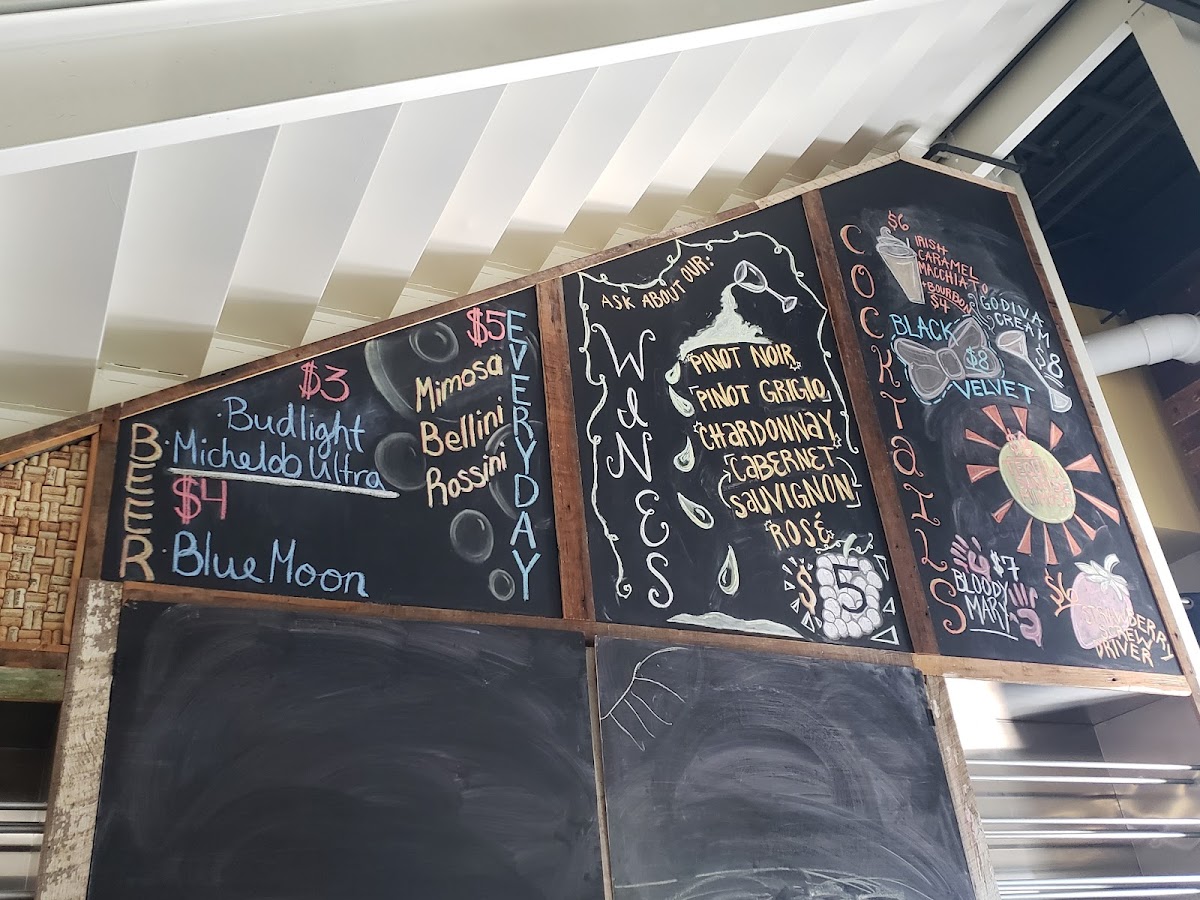 BEER
$3
Budlight
Michelob Ultra
$4
Blue Moon
$5
EVERYDAY
Mimosa
Bellini
Rossini
ASK ABOUT OUR:
WiNES
PINOT NOIR
PINOT GRIGIO
CHARDONNAY
CABERNET
SAUVIGNON
ROSÉ
$5
COCKTaILS
$6
IRISH
CARAMEL
MACCHIATO
+BOURBON
$4
GODIVA
CREAM
$8
BLACK
$8
VELVET
$7
BLOODY
MARY
STRAWBERRY
SCREW
DRIVER